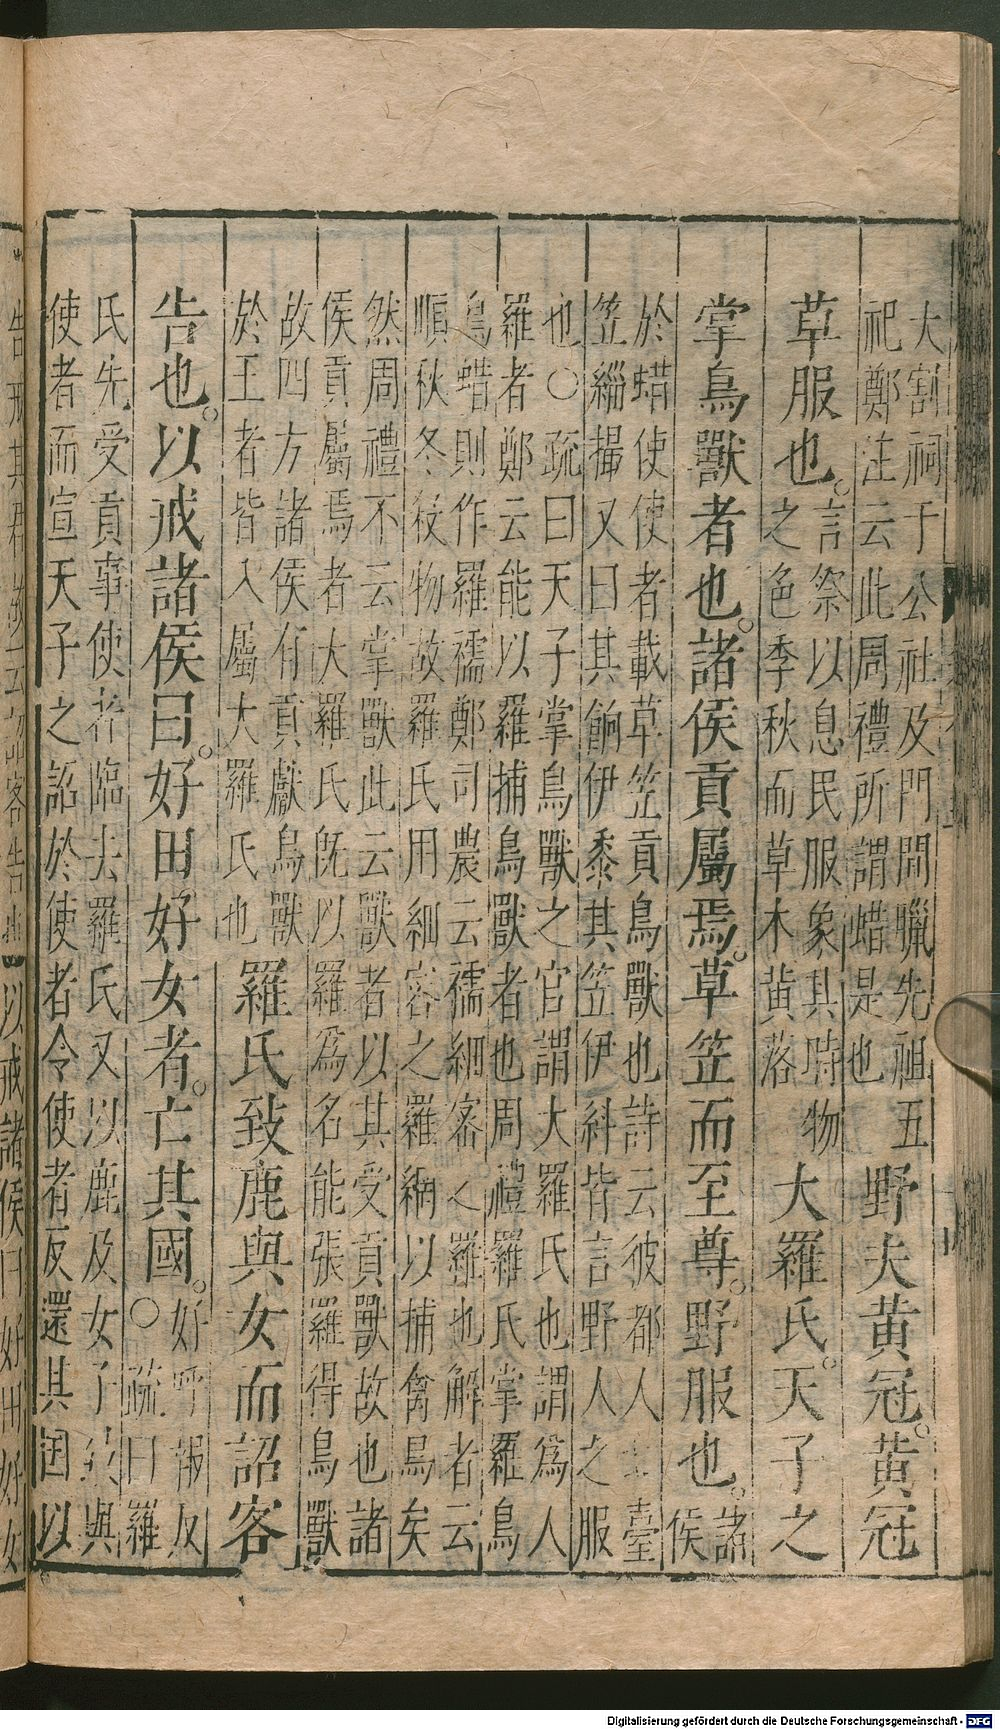 大割祠于公社及門閭臘先祖五
祀鄭注云此周禮所謂蜡是也
野夫黃冠。黃冠
草服也。
言祭以息民服象其時物
之色季秋而草木黃落
大羅氏。天子之
掌鳥獸者也。諸侯貢屬焉。草笠而至尊。野服也。
諸
侯
於蜡使使者載草笠貢鳥獸也詩云彼都人士臺
笠緇撮又曰其餉伊黍其笠伊糾皆言野人之服
也○疏曰天子掌鳥獸之官謂大羅氏也謂為人
羅者鄭云能以羅捕鳥獸者也周禮羅氏掌羅鳥
烏蜡則作羅襦鄭司農云襦細密之羅也解者云
順秋冬殺物故羅氏用細密之羅網以捕禽鳥矣
然周禮不云掌獸此云獸者以其受貢獸故也諸
侯貢屬焉者大羅氏既以羅為名能張羅得鳥獸
故四方諸侯有貢獻鳥獸
於王者皆入屬大羅氏也
羅氏致鹿與女而詔客
告也。以戒諸侯曰。好田。好女者。亡其國。
好呼報反
○疏曰羅
氏先受貢事使者臨去羅氏又以鹿及女子致與
使者而宣天子之詔於使者令使者反還其國以
以戒諸侯曰好田好女
Digitalisierung gefördert durch die Deutsche Forschungsgemeinschaft - DFG